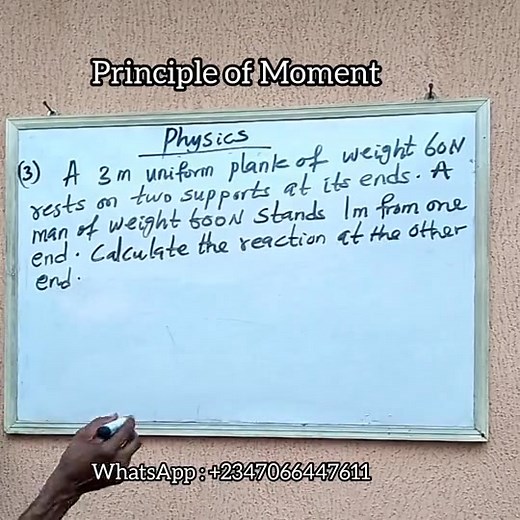 Principle of Moment
Physics
(3) A 3m uniform plank of weight 60N
rests on two supports at its ends. A
man of weight 600N stands 1m from one
end. Calculate the reaction at the other
end.
WhatsApp : +2347066447611